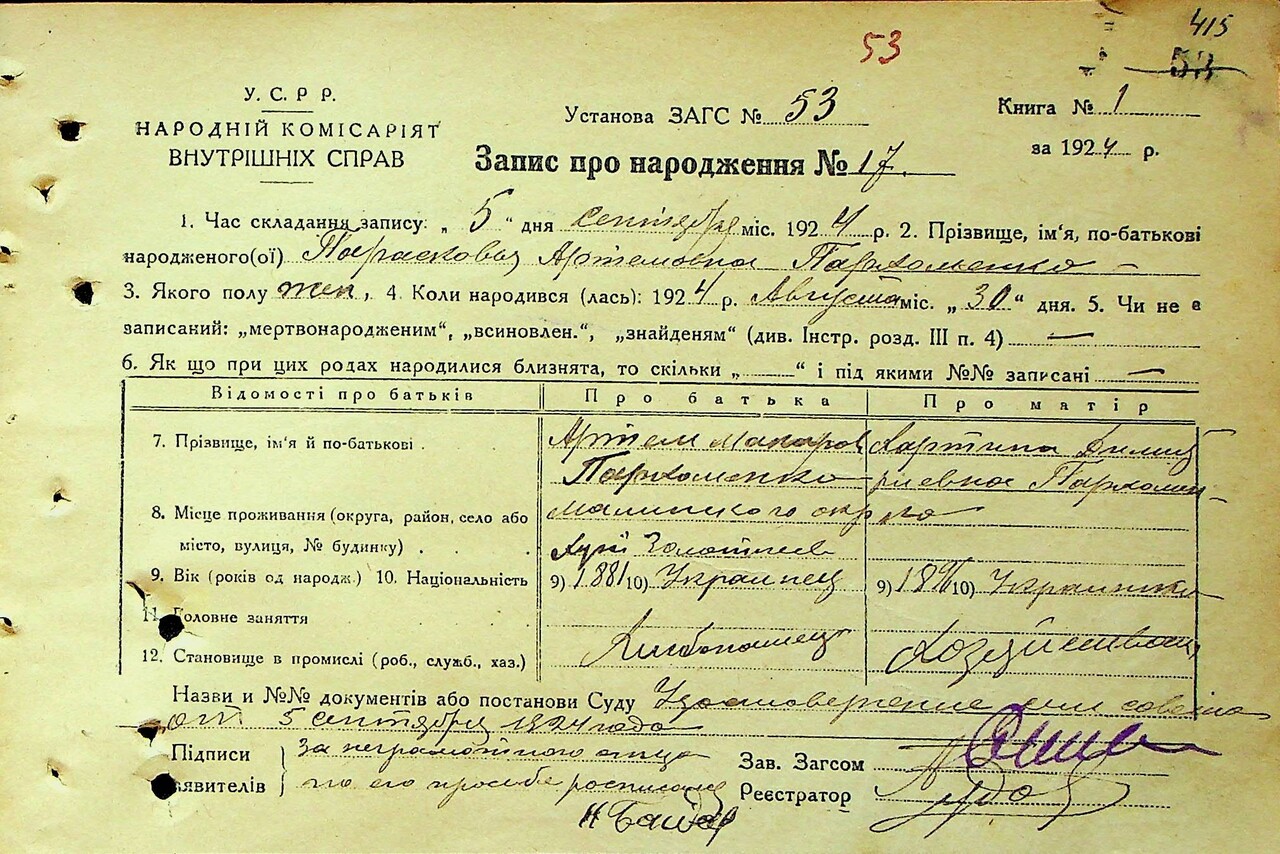 415
53
53
У. С. Р. Р.
НАРОДНІЙ КОМІСАРІЯТ
ВНУТРІШНІХ СПРАВ
Установа ЗАГС № 53
Книга № 1
за 1924 р.
Запис про народження № 17.
1. Час складання запису: „ 5 “ дня сентября міс. 1924 р. 2. Прізвище, ім'я, по-батькові
народженого(ої) Парасковья Артемовна Пархоменко —
3. Якого полу жен, 4. Коли народився (лась): 1924 р. Августа міс. „ 30 “ дня. 5. Чи не є
записаний: „мертвонародженим“, „всиновлен.“, „знайденям“ (див. Інстр. розд. III п. 4) —
6. Як що при цих родах народилися близнята, то скільки „ “ і під якими №№ записані —
Відомості про батьків Про батька Про матір
7. Прізвище, ім'я й по-батькові . Артем Макаров Пархоменко
8. Місце проживання (округа, район, село або
місто, вулиця, № будинку) . .
9. Вік (років од народж.) 10. Національність 9) 1881 10) Украинец 9) 10) Украинка
11. Головне заняття
12. Становище в промислі (роб., служб., хаз.) Хлебопашец
Назви и №№ документів або постанови Суду Удостоверение совета
от 5 сентября 1924 года
Підписи за неграмотного отца
заявителів по его просьбе росписался
Зав. Загсом
Реєстратор